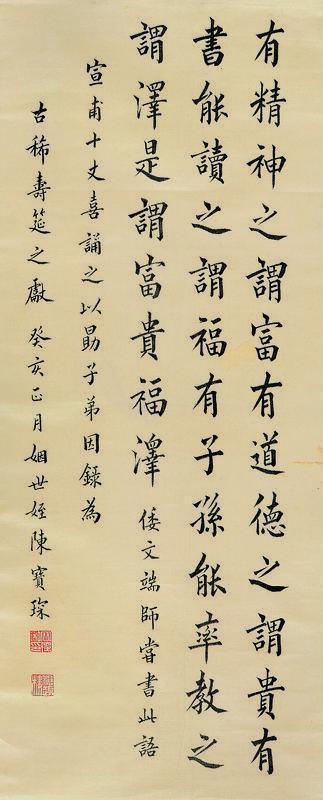 有精神之謂富有道德之謂貴有
書能讀之謂福有子孫能率教之
謂澤是謂富貴福澤 倭文端師嘗書此語
宣甫十丈喜誦之以勖子弟因錄為
古稀壽筵之獻 癸亥正月姻世姪陳寶琛